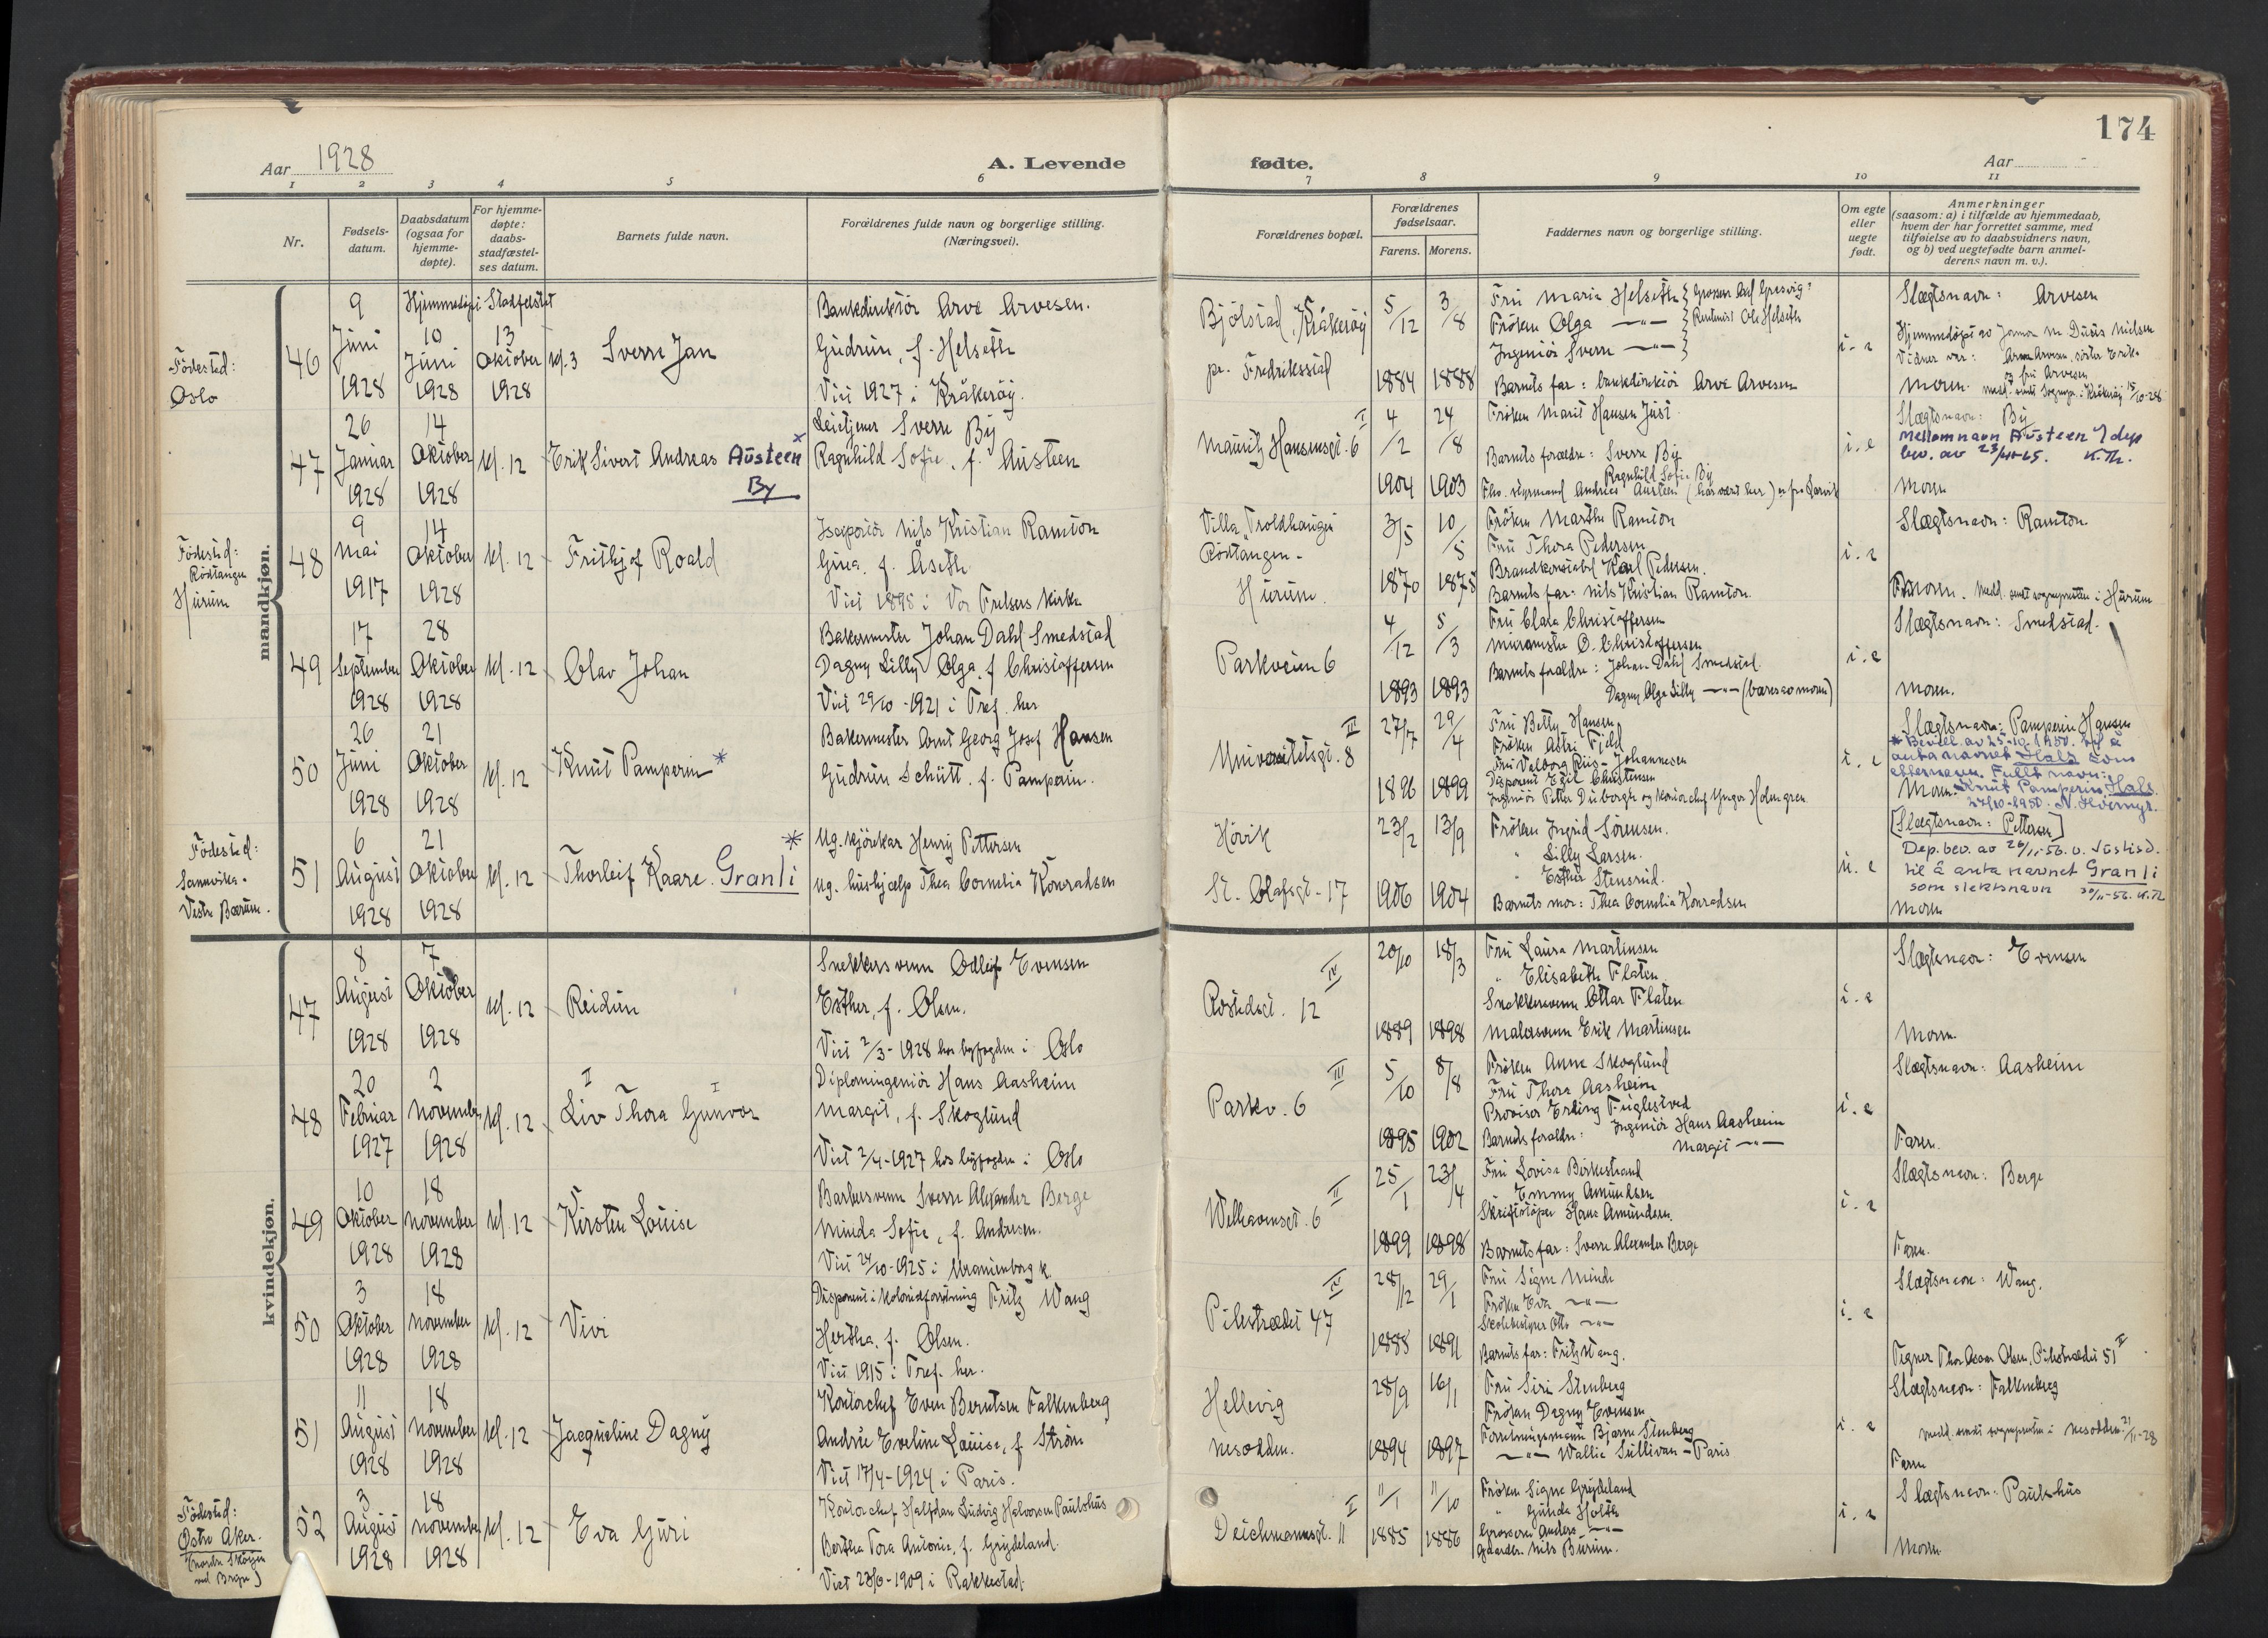 174
Aar 1928
A. Levende fødte.
Aar
1 2 3 4 5 6 7 8 9 10 11
Nr.
Fødsels-
datum.
Daabsdatum
(ogsaa for
hjemme-
døpte).
For hjemme-
døpte:
daabs-
stadfæstel-
ses datum.
Barnets fulde navn.
Forældrenes fulde navn og borgerlige stilling.
(Næringsvei).
Forældrenes bopæl.
Forældrenes
fødselsaar.
Farens. Morens.
Faddernes navn og borgerlige stilling.
Om egte
eller
uegte
født.
Anmerkninger
(saasom: a) i tilfælde av hjemmedaab,
hvem der har forrettet samme, med
tilføielse av to daabsvidners navn,
og b) ved uegtefødte barn anmel-
derens navn m. v.).
mandkjøn.
Födested:
Oslo
46
9
Juni
1928
Hjemmedöpt
10
Juni
1928
Stadfestet
13
Oktober
1928
kl. 3
Sverre Jan
Bankdirektör Arve Arvesen.
Gudrun, f. Helseth
Viet 1927 i Kråkeröy.
Bjölstad, Kråkeröy
pr. Fredriksstad
5/12 1884
3/8 1888
Fru Maria Helseth
Fröken Olga —"—
Ingeniör Sverre —"—
Rentenist Ole Helseth
Barnets far: bankdirektör Arve Arvesen
i. e
Slægtsnavn: Arvesen
Vidner var:
fru Arvesen
Moren.
47
26
Januar
1928
14
Oktober
1928
kl. 12
Erik Sivert Andreas Austeen
By
Sverre By
Ragnhild Sofie, f. Austeen
Mauritz Hansensgt. 6 I
4/2 1904
24/8 1903
Fröken Marit Hansen Just
Barnets forældre: Sverre By
Ragnhild Sofie By
i. e
Slægtsnavn: By
Mellomnavn Austeen
Moren
Födested:
Rödtangen
Hurum
48
9
Mai
1917
14
Oktober
1928
kl. 12
Frithjof Roald
Nils Kristian Ramton
Gina, f. Åseth
Viet 1898 i Vor Frelsers kirke
Villa "Troldhaugen"
Rödtangen -
Hurum.
3/5 1870
10/5 1875
Fröken Martha Ramton
Fru Thora Pedersen
Brandkonstabel Karl Pedersen.
Barnets far: Nils Kristian Ramton.
i. e
Slægtsnavn: Ramton
Moren. Medd. sendt sognepresten i Hurum
49
17
September
1928
28
Oktober
1928
kl. 12
Olav Johan
Bakermester Johan Dahl Smedstad
Dagny Lilly Olga, f. Christoffersen
Viet 29/10 - 1921 i Tref. her
Parkveien 6
4/12 1893
5/3 1893
Fru Clara Christoffersen
Murmester O. Christoffersen
Barnets forældre: Johan Dahl Smedstad
Dagny Olga Lilly —"— (bares av moren)
i. e
Slægtsnavn: Smedstad.
Moren.
50
26
Juni
1928
21
Oktober
1928
kl. 12
Knut Pamperin *
Bakermester Arnt Georg Josef Hansen
Gudrun Schütt, f. Pamperin.
Universitetsgt. 8 III
27/7 1896
29/4 1899
Fru Betty Hansen
Fröken Astri Fjeld
Fru Valborg Riis-Johannesen
Disponent Egil Christensen
Ingeniör Petter Duborgh og kontorchef Yngvar Holmgren
i. e
Slægtsnavn: Pamperin Hansen
* Bevill. av 25-10-1950 til å
anta navnet Hals som
etternavn. Fullt navn:
Knut Pamperin Hals.
Moren.
Födested:
Sannvika.
Vestre Bærum.
51
6
August
1928
21
Oktober
1928
kl. 12
Thorleif Kaare. Granli *
Ug. kjörekar Henry Pettersen
Ug. hushjælp Thea Cornelia Konradsen
Hövik
St. Olafsgt. 17
23/2 1906
13/9 1904
Fröken Ingrid Sörensen.
" Lilly Larsen.
" Esther Stensrud.
Barnets mor: Thea Cornelia Konradsen
u. e
[Slægtsnavn: Pettersen]
Dep. bev. av 26/11-56. v. Justisd.
til å anta navnet Granli
som slektsnavn 30/11-56. K.Th.
Moren
kvindekjøn.
47
8
August
1928
7
Oktober
1928
kl. 12
Reidun
Snekkersvenn Odleif Evensen
Esther, f. Olsen.
Viet 2/3 - 1928 hos byfogden i Oslo
Rostedsgt. 12 IV
20/10 1889
18/3 1898
Fru Laura Martinsen
" Elisabeth Flaten
Snekkersvenn Ottar Flaten
Malersvenn Erik Martinsen
i. e
Slægtsnavn: Evensen
Moren.
48
20
Februar
1927
2
November
1928
kl. 12
Liv Thora Gunvor
Diplomingeniör Hans Aasheim
Margit, f. Skoglund
Viet 2/4-1927 hos byfogden i Oslo
Parkv. 6 III
5/10 1895
8/8 1902
Fröken Anna Skoglund
Fru Thora Aasheim
Provisor Erling Fuglestved
Barnets forældre: Ingeniör Hans Aasheim
Margit —"—
i. e
Slægtsnavn: Aasheim
Faren.
49
10
Oktober
1928
18
November
1928
kl. 12
Kirsten Louise
Barbersvenn Sverre Alexander Berge
Minda Sofie, f. Andresen.
Viet 24/10-1925 i Uranienborg k.
Welhavensgt. 6 II
25/1 1899
23/4 1898
Fru Lovise Birkestrand
" Emmy Amundsen
Skriftstöper Hans Amundsen.
Barnets far: Sverre Alexander Berge
i. e
Slægtsnavn: Berge
Faren.
50
3
Oktober
1928
18
November
1928
kl. 12
Vivi
Disponent i kolonialforretning Fritz Wang
Hertha, f. Olsen.
Viet 1915 i Tref. her.
Pilestrædet 47 IV
28/12 1888
29/1 1891
Fru Signe Minde
Fröken Eva —"—
Skolebestyrer Otto —"—
Barnets far: Fritz Wang.
i. e
Slægtsnavn: Wang.
Tegner Thor Aasar Olsen, Pilestrædet 51 II
51
11
August
1928
18
November
1928
kl. 12
Jacqueline Dagny
Kontorchef Even Berntsen Falkenberg
Andrée Eveline Louise, f. Ström
Viet 17/4-1924 i Paris.
Hellvig
Nesodden.
28/9 1894
16/1 1897
Fru Siri Stenberg
Fröken Dagny Evensen
Forretningsmann Bjarne Stenberg
—"— Wallie Sullivan - Paris
i. e
Slægtsnavn: Falkenberg
Medd. sendt sognepresten i Nesodden 21/11-28
Faren
Födested:
Östre Aker.
(nordre Skögen
ved Bryn)
52
3
August
1928
18
November
1928
kl. 12
Eva Guri
Kontorchef Halfdan Ludvig Halvorsen Paulshus
Bertha Tora Antonie, f. Gröydeland.
Viet 23/6-1909 i Rakkestad.
Deichmannsgt. 11 I
11/1 1885
11/10 1886
Fröken Signe Gröydeland
" Gunda Holth
Grosserer Anders —"—
Gaardbr. Nils Burum.
i. e
Slægtsnavn: Paulshus
Moren